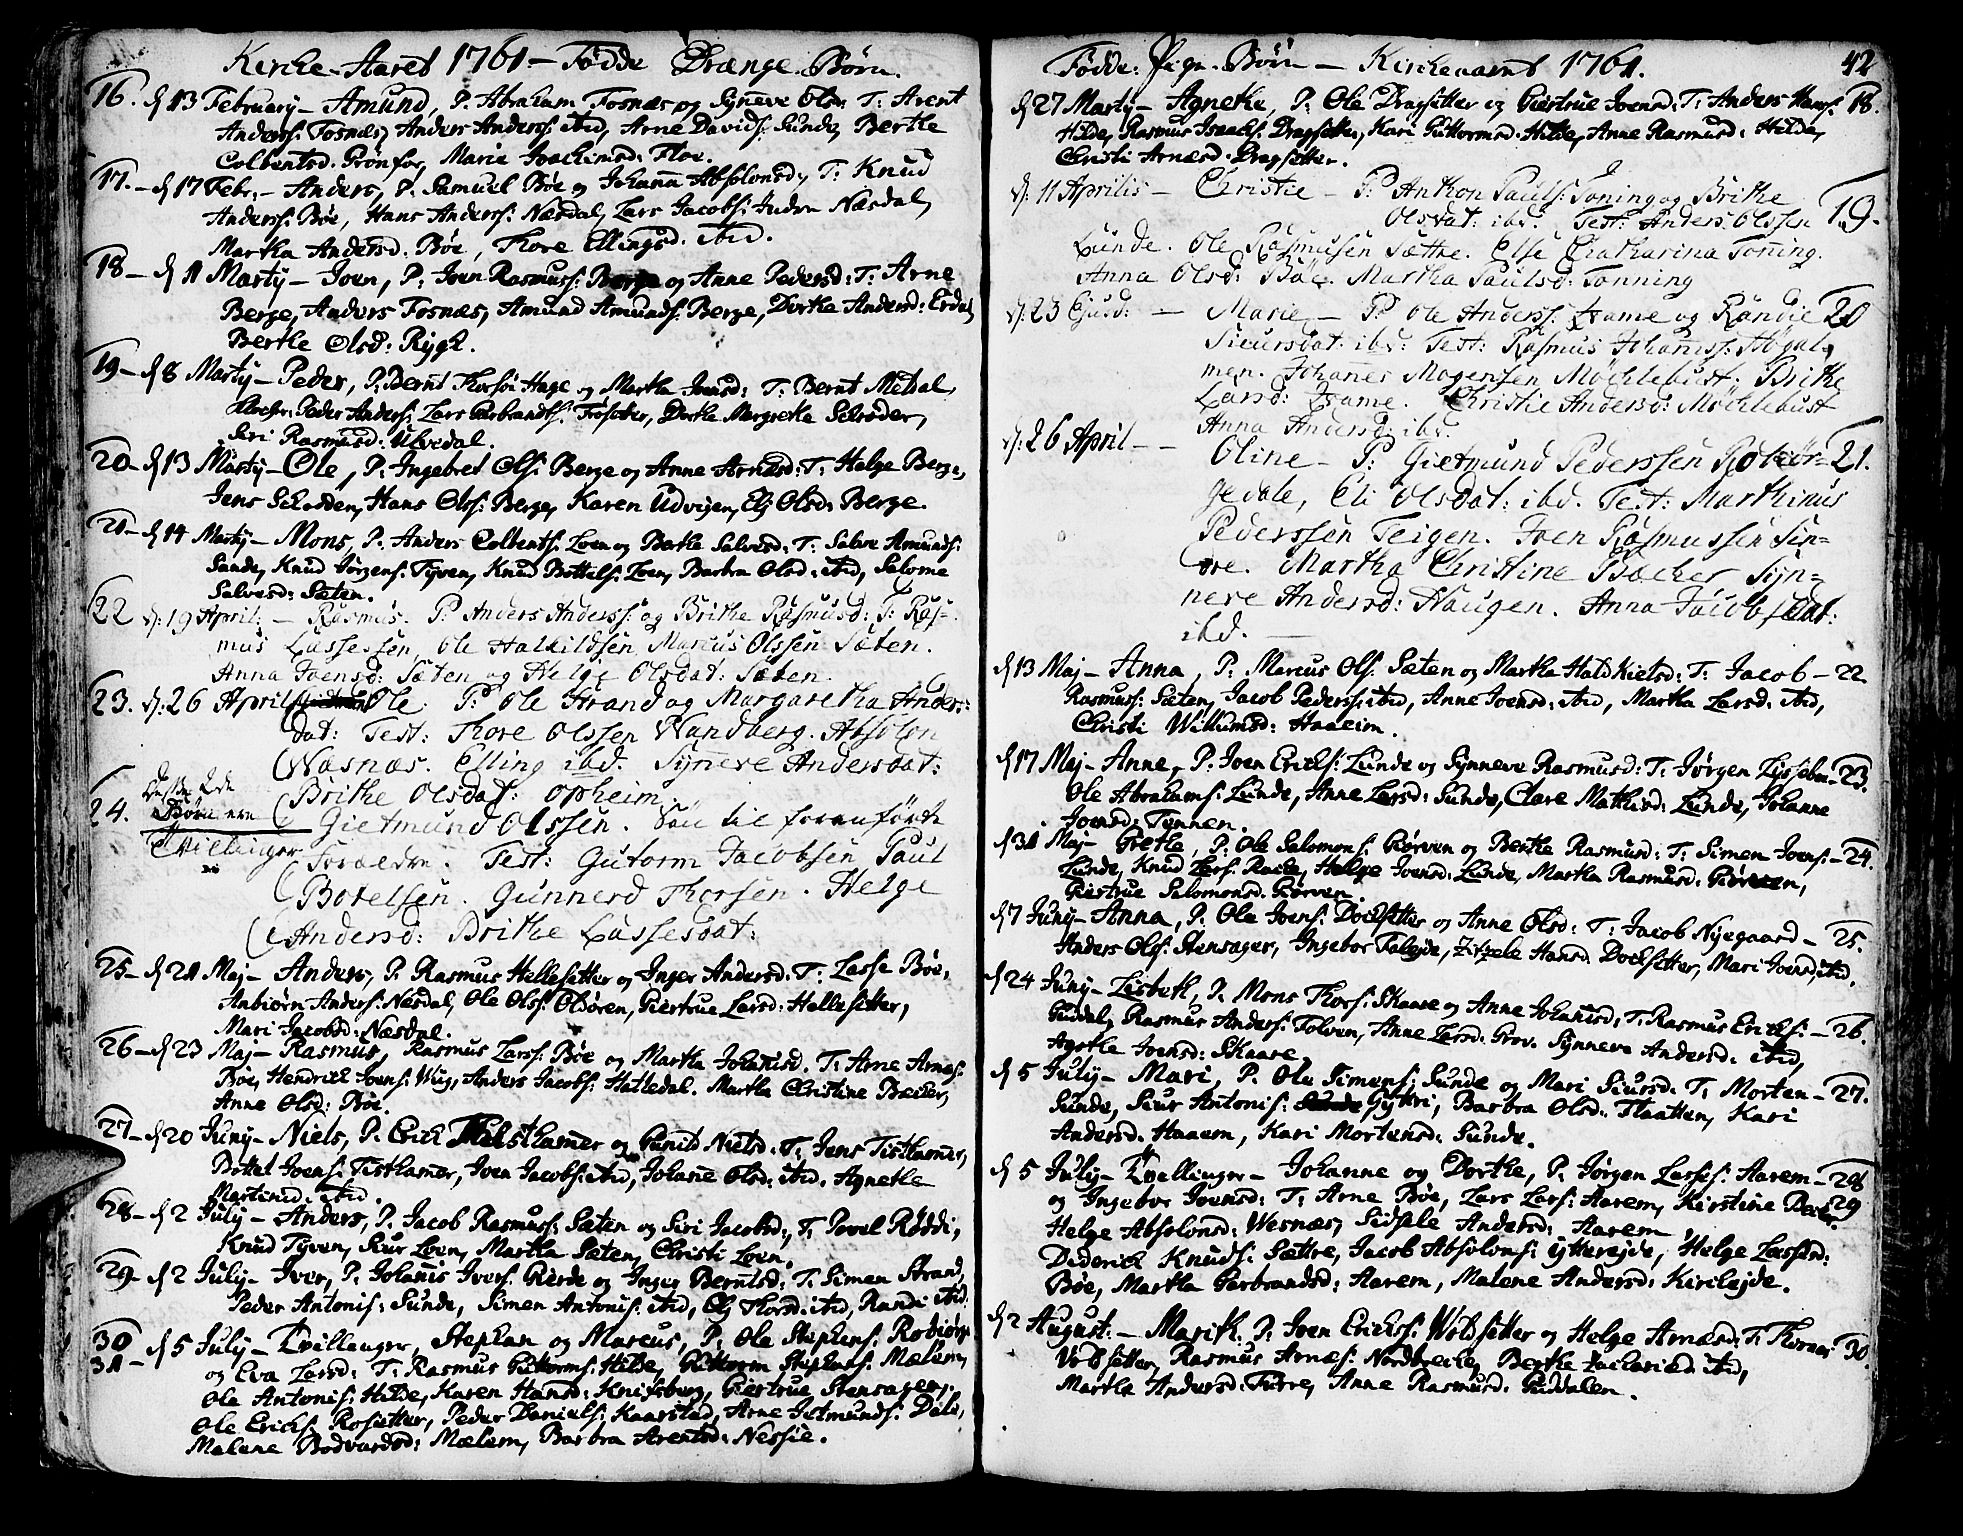 Kirche-Aaret 1761 – Fødde Drænge Børn.
16. d 13 February – Amund, P. Abraham Fosnæs og Synneve Olsd: T: Arent
Anderss: Fosnæs, Anders Anderss: ibid, Arne Davids: Sunde, Berthe
Colbentsd. Grönfor, Marie Joachimsd: Floe.
17. – d 17 Febr. – Anders, P. Samuel Bøe og Johanna Absolonsd, T: Knud
Anderss: Bøe, Hans Anderss: Næsdal, Lars Jacobs: Indre Næsdal,
Martha Andersd. Bøe, Thore Ellingsd: ibid.
18 – d 1 Marty – Joen, P. Joen Rasmuss: Berge og Anne Pedersd: T: Arne
Berge, Anders Fosnæs, Amund Amunds: Berge, Dorthe Andersd: Erdal,
Berthe Olsd: Rygh.
19 – d 8 Marty – Peder, P. Bernt Thorsøi Hage og Martha Joensd: T: Bernt Meldal,
Peder Anders: Lars Garbrandts: Frøseter, Dorthe Margrethe Schrøder,
Siri Rasmusd: Ulvedal.
20 – d 13 Marty – Ole, P. Ingebret Ols: Berge og Anne Arnesd: T: Helge Berge,
Jens Schrødden, Hans Olss: Berge, Karen Udvigen, Elj Olsd: Berge.
21 – d 14 Marty – Mons, P. Anders Colbents: Loen og Berthe Salvesd: T: Salve Amunds:
Sunde, Knud Jørgens: Tyven, Knud Bottels: Loen, Barbra Olsd: ibid, Salome
Salvesd: Sæten.
22 d: 19 April: – Rasmus. P: Anders Anderss: og Brithe Rasmusd: T: Ras-
mus Lassessen, Ole Halkildsen, Marcus Olssen Sæten.
Anna Joensd: Sæten og Helge Olsdat: Sæten.
23. d: 26 April Ole. P: Ole Strand og Margaretha Anders:
dat: Test: Thore Olssen Wandberg. Absolon
Wasnæs. Elling ibd. Synneve Andersdat:
Brithe Olsdat: Opheim.
24. Børn ere Gietmund Olssen. Søn til foranførte
Tvillinger Foræeldre. Test: Gutorm Jacobsen Paul
Botelsen. Gunnerd Thorsen. Helge
Andersd: Brithe Lassesdat:
25 – d 21 Maj – Anders, P. Rasmus Hellesetter og Inger Andersd: T: Lasse Bøe,
Anbiørn Anders: Nesdal, Ole Olss: Oldören, Giertrue Larsd: Hellesetter,
Mari Jacobsd: Næsdal.
26 – d 23 Maj – Rasmus, Rasmus Larss: Bøe og Martha Johanisd. T: Arne Arnes:
Bøe, Hendrich Joens: Wug, Anders Jacobs: Hattedal. Martha Christine Becker,
Anne Olsd: Bøe.
27 – d 20 Juny – Niels, P. Erich Tisthamer og Gunild Nielsd: T: Jens Tisthamer,
Bottel Joens: Tisthamer, Joen Jacobs: ibid, Johanne Olsd: ibid, Agnethe
Martinsd: ibid.
28 – d 2 July – Anders, P. Jacob Rasmuss: Sæten og Siri Jacobsd:, T: Povel Røddi,
Knud Tyven, Siur Loen, Martha Sæten, Christi Loen.
29 – d 2 July – Iver, P. Johanis Ivers: Gierde og Inger Berntsd: T: Simen Strand,
Peder Antonis: Sunde, Simen Antonis: ibid, Elj Thorsd: ibid, Randi ibid.
30
31 – d 5 July – Tvillinger, Stephan og Marcus, P: Ole Stephens: Rodiørge
og Eva Larsd: T: Rasmus Guttorms: Hilde, Guttorm Stephans: Mælem,
Ole Antonis: Hilde, Karen Hansd: Knifsberg, Giertrue Stensager.
Ole Erichs: Rosætter, Peder Daniels: Kaarstad, Arne Jetmunds: Dele,
Malene Bodvardsd: Mælem, Barbra Arentsd: Nessie.
42
Fødde Pige Børn – Kircheaaret 1761.
d 27 Marty – Agnethe, P: Ole Dragsetter og Giertrue Joensd: T: Anders Hans: 18.
Hilde, Rasmus Isaachs: Dragsetter, Kari Guttormsd: Hilde, Anne Rasmusd: Hilde,
Christi Arnesd: Dragsetter.
d: 11 Aprilis – Christie – P: Anthon Pauls: Toning og Brithe
Olsdat: ibd: Test: Anders Olssen 19.
Lunde. Ole Rasmusen Sættre. Else Chatharina Toning.
Anna Olsd: Bøe. Martha Paulsd: Tonning
d: 23 Ejusd: – Marie – P: Ole Anderss: Frame og Randie 20
Siursdat: ibd: Test: Rasmus Johaness:
men. Johanes Mogensen Möchlebust, Brithe
Larsd: Frame. Christie Andersd: Möchlebust
Anna Andersd: ibd.
d: 26 April – – Oline – P: Gietmund Pederssen Rodiör- 21.
gedale, Eli Olsdat: ibd. Test: Marthinus
Pederssen Teigen. Joen Rasmussen Sin-
dre. Martha Christine Bæcker, Syn-
neve Andersd: Haugen. Anna Jacobsdat:
ibd.
d 13 Maj – Anna, P: Marcus Ols: Sæten og Martha Haldkields: T: Jacob – 22
Rasmuss: Sæten, Jacob Pederss: ibid, Anne Joensd: ibid, Martha Larsd: ibid,
Christi Willumsd: Haaeim.
d 17 Maj – Anne, P: Joen Erichs: Lunde og Synneve Rasmusd: T: Jørgen 23.
Ole Abrahams: Lunde, Anne Larsd: Sunde, Clare Mathisd: Lunde, Johanne
Joensd: Tonnen.
d 31 Maj – Grethe, P: Ole Salomons: Giørven og Berthe Rasmusd: T: Simen Joens: – 24.
Lunde, Knud Lars: Raise, Helge Joensd: Lunde, Martha Rasmusd: Giørven,
Giertrue Salomonsd. Giørven
d 7 Juny – Anna, P: Ole Joens: Dochsetter og Anne Olsd: T: Jacob Nyegaard – 25.
Anders Ols: Stensager, Ingebor Faleide, Zitzele Hansd. Dochsetter, Mari Joensd: ibid.
d 24 Juny – Lisbeth, P. Mons Thors: Skaare og Anne Johanisd: T: Rasmus Erichs: – 26.
Guddal, Rasmus Anders: Tolven, Anne Larsd: Grov. Synneve Andersd: ibid,
Agethe Joensd: Skaare.
d 5 July – Mari, P. Ole Simens: Sunde og Mari Siursd: T: Morten – 27.
Sunde, Siur Antonis: Gyttri, Barbra Olsd: Flaatten, Kari
Andersd. Haaem, Kari Mortensd: Sunde.
d 5 July – Tvellinger – Johanne og Dorthe, P. Jørgen Lasses: Aarem – 28
og Ingebor Joensd: T: Arne Bøe, Lars Lars: Aarem, Kirstine 29
Helge Absolonsd: Wesnæs, Sidsele Andersd: Aarem
Diderich Knuds: Sættre, Jacob Absolons: ytterejde, Helge Lassesd:
Bøe, Martha Garbrandsd: Aarem, Malene Andersd: Kirchejde.
d 2 August: – Marith. P: Joen Erichss: Woldsetter og Helge Arnæsd: T: Thomas 30.
Voldsetter, Rasmus Arnæs: Nordbreche, Berthe Zachariæd: ibid,
Martha Andersd: Furre, Anne Rasmusd: Guddalen.